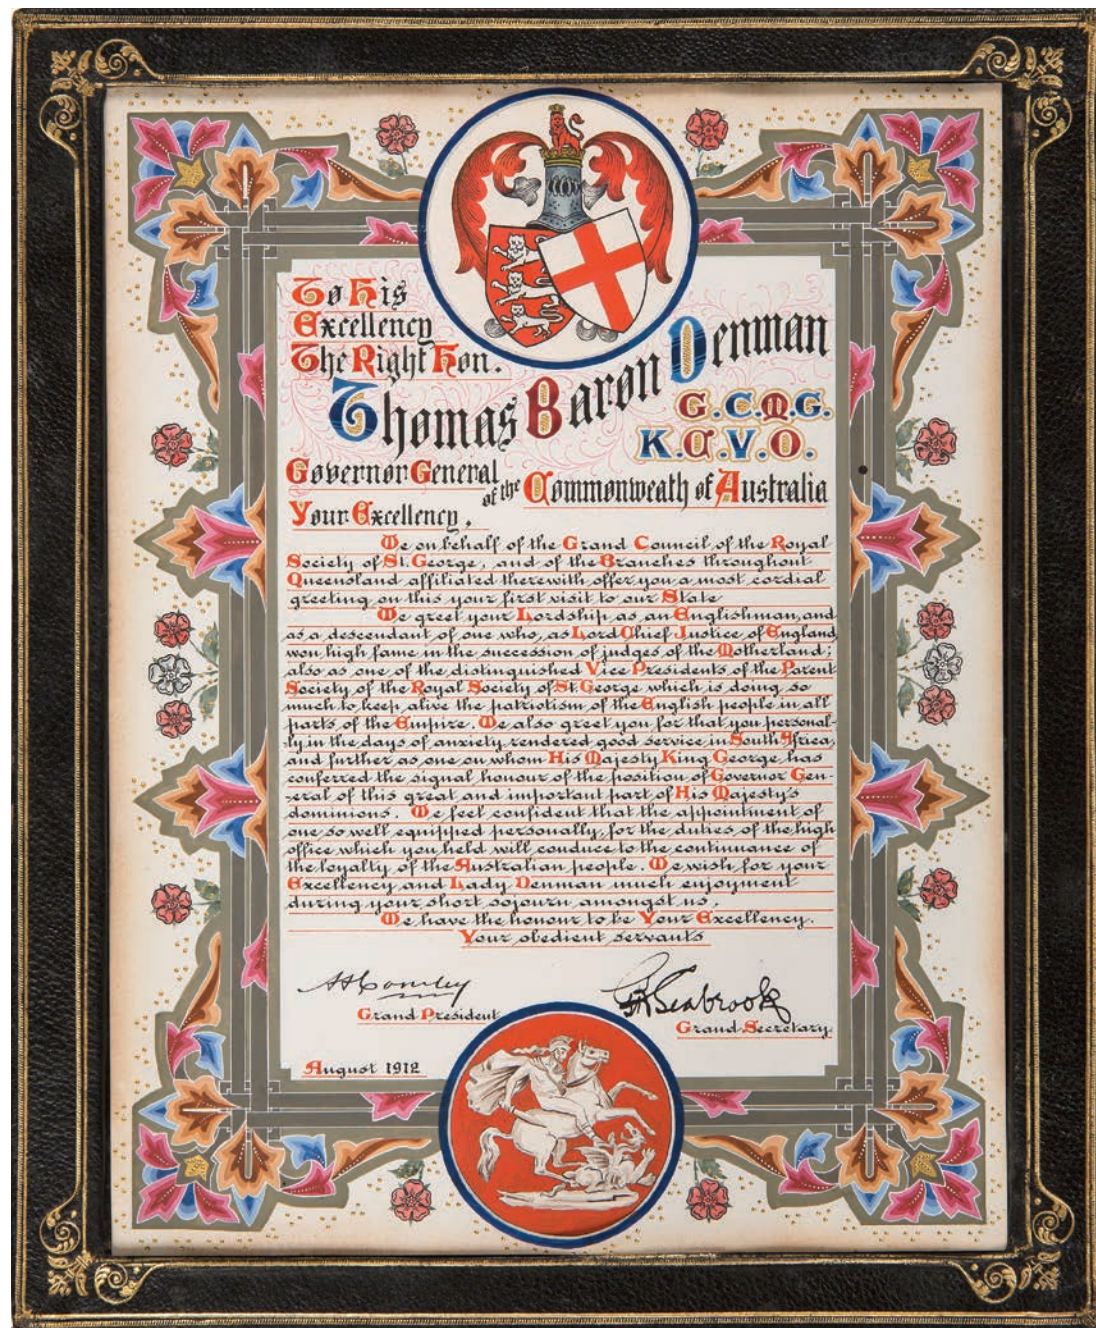 To His
Excellency
The Right Hon.
Thomas Baron Denman
G.C.M.G.
K.C.V.O.
Governor General
of the Commonweath of Australia
Your Excellency,
We on behalf of the Grand Council of the Royal
Society of St. George, and of the Branches throughout
Queensland affiliated therewith offer you a most cordial
greeting on this your first visit to our State
We greet your Lordship as an Englishman, and
as a descendant of one who, as Lord Chief Justice of England
won high fame in the succession of judges of the Motherland;
also as one of the distinguished Vice Presidents of the Parent
Society of the Royal Society of St. George which is doing so
much to keep alive the patriotism of the English people in all
parts of the Empire. We also greet you for that you personal-
ly in the days of anxiety rendered good service in South Africa,
and further as one on whom His Majesty King George has
conferred the signal honour of the position of Governor Gen-
-eral of this great and important part of His Majesty's
dominions. We feel confident that the appointment of
one so well equipped personally, for the duties of the high
office which you held will conduce to the continuance of
the loyalty of the Australian people. We wish for your
Excellency and Lady Denman much enjoyment
during your short sojourn amongst us.
We have the honour to be Your Excellency.
Your obedient servants
Seabrook
Grand President
Grand Secretary
August 1912